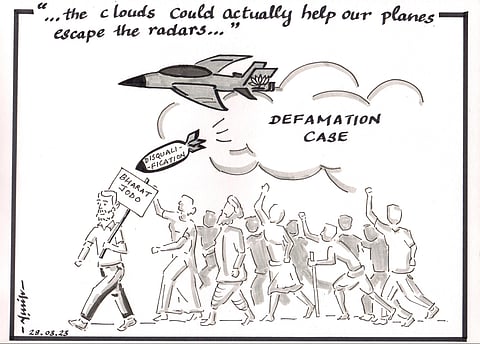 "...the clouds could actually help our planes
escape the radars..."
DEFAMATION
CASE
DISQUALI-
FICATION
BHARAT
JODO
28.03.23